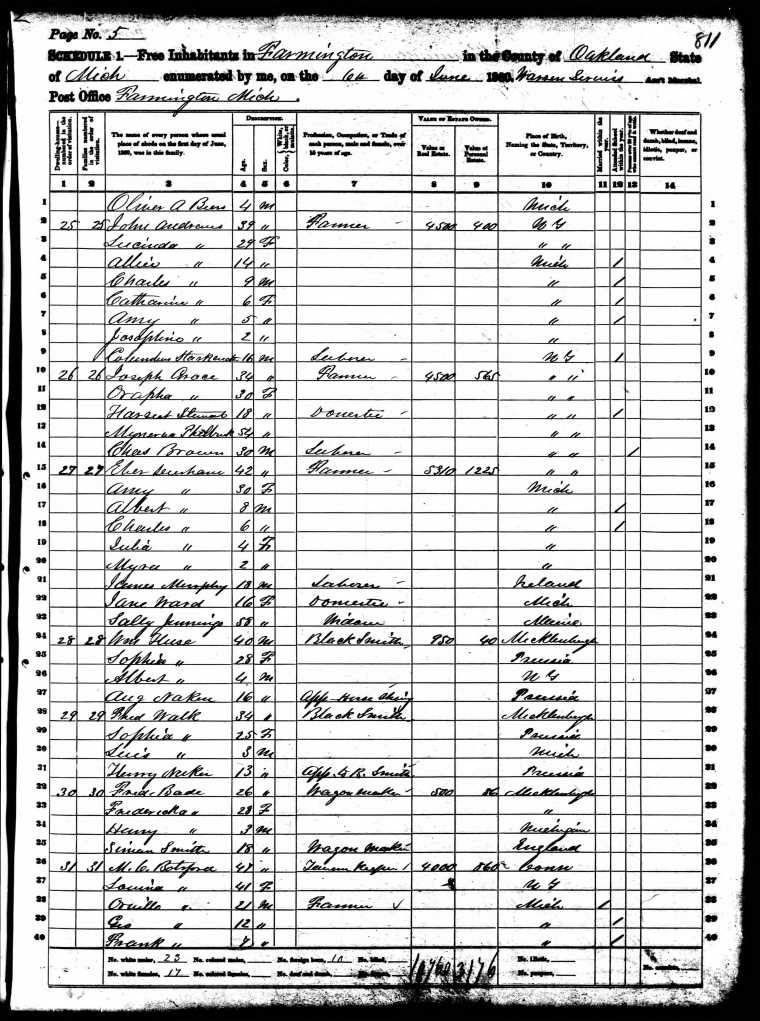 Page No. 5
811
SCHEDULE 1.—Free Inhabitants in Farmington in the County of Oakland State
of Mich enumerated by me, on the 6th day of June 1860. Warren Serviss Ass't Marshal.
Post Office Farmington Mich.
Dwelling-houses— numbered in the order of visitation.
Families numbered in the order of visitation.
The name of every person whose usual place of abode on the first day of June, 1860, was in this family.
DESCRIPTION.
Age.
Sex.
Color, White, black, or mulatto.
Profession, Occupation, or Trade of each person, male and female, over 15 years of age.
VALUE OF ESTATE OWNED.
Value of Real Estate.
Value of Personal Estate.
Place of Birth, Naming the State, Territory, or Country.
Married within the year.
Attended School within the year.
Whether deaf and dumb, blind, insane, idiotic, pauper, or convict.
1 2 3 4 5 6 7 8 9 10 11 12 13 14
1 Oliver A Beers 4 m Mich 1
2 25 25 John Andrews 39 " Farmer - 4500 400 N Y 2
3 Lucinda " 29 F " " 3
4 14 " Mich / 4
5 Charles " 9 m " / 5
6 Catharine " 6 F " / 6
7 Amy " 5 " " / 7
8 Josephine " 2 " " 8
9 Columbus 16 m Laborer - N Y / 9
10 26 26 Joseph Grace 34 " Farmer - 4500 565 " " 10
11 Orapha " 30 F " " 11
12 Harriet Stewart 18 " Domestic - " " / 12
13 Mynerva Philbrick 54 " " " 13
14 Chas Brown 30 M Laborer - " " / 14
15 27 27 Eber 42 " Farmer - 5310 1225 " " 15
16 Amy " 30 F Mich 16
17 Albert " 8 m " / 17
18 Charles " 6 " " / 18
19 Julia " 4 F " 19
20 Myra " 2 " " 20
21 James Murphy 18 m Laborer - Ireland 21
22 Jane Ward 16 F Domestic - Mich 22
23 Sally Jennings 58 " Widow Maine 23
24 28 28 Wm Huse 40 M Black Smith 950 40 Mecklenburgh 24
25 Sophia " 28 F Prussia 25
26 Albert " 4 m N Y 26
27 Aug Naker 16 " App Prussia 27
28 29 29 Fred Walk 34 " Black Smith Mecklenburgh 28
29 Sophia " 25 F Prussia 29
30 Luis " 3 m Mich 30
31 Henry Naker 13 " App to B. Smith Prussia 31
32 30 30 Fred. Bade 26 " Wagon maker - 500 86 Mecklenburgh 32
33 Fredericka " 28 F " 33
34 Henry " 3 m Michigan 34
35 Simon Smith 18 " Wagon Maker England 35
36 31 31 M. C. Botsford 47 " Tavern Keeper / 4000 860 Conn 36
37 Lovina " 41 F N Y 37
38 Orville " 21 M Farmer Mich / 38
39 Geo " 12 " " / 39
40 Frank " 7 " " / 40
No. white males, 23 No. colored males, No. foreign born, 10 No. blind, 19760 3176 No. idiotic,
No. white females, 17 No. colored females, No. deaf and dumb, No. paupers, No. convicts,